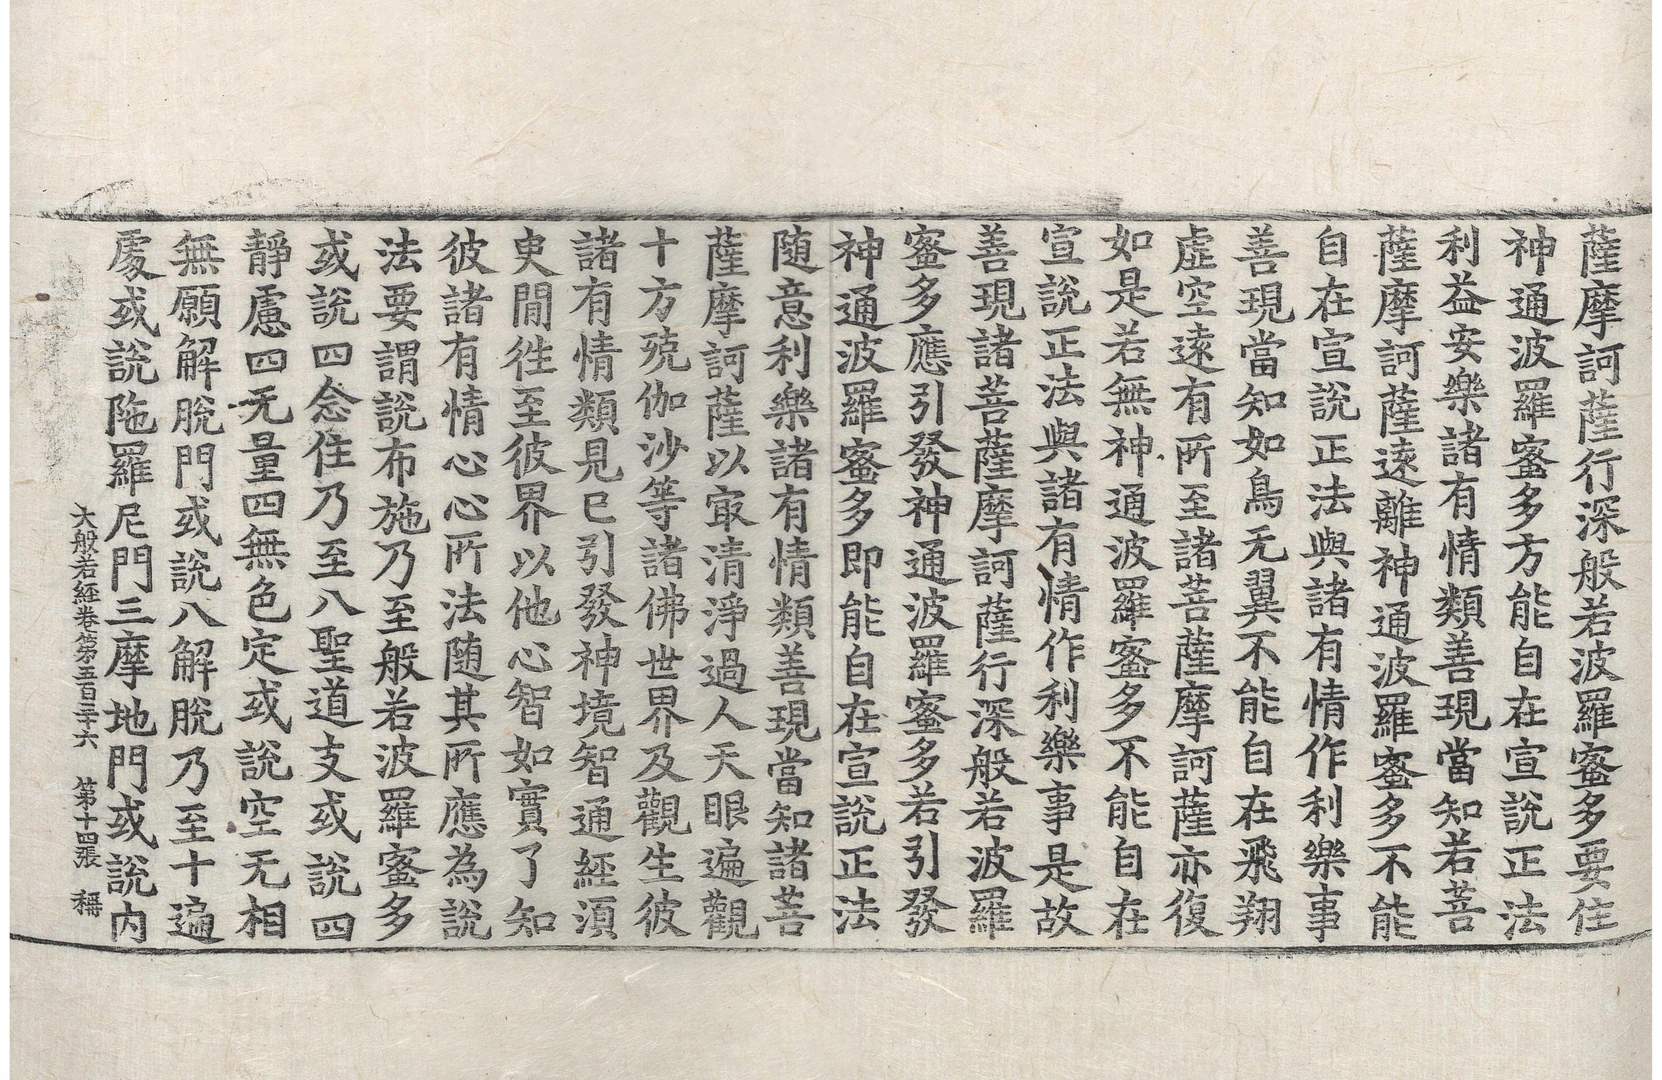 薩摩訶薩行深般若波羅蜜多要住
神通波羅蜜多方能自在宣說正法
利益安樂諸有情類善現當知若菩
薩摩訶薩遠離神通波羅蜜多不能
自在宣說正法與諸有情作利樂事
善現當知如鳥无翼不能自在飛翔
虛空遠有所至諸菩薩摩訶薩亦復
如是若無神通波羅蜜多不能自在
宣說正法與諸有情作利樂事是故
善現諸菩薩摩訶薩行深般若波羅
蜜多應引發神通波羅蜜多若引發
神通波羅蜜多即能自在宣說正法
随意利樂諸有情類善現當知諸菩
薩摩訶薩以㝡清淨過人天眼遍觀
十方殑伽沙等諸佛世界及觀生彼
諸有情類見已引發神境智通經湏
臾閒徃至彼界以他心智如實了知
彼諸有情心心所法随其所應為說
法要謂說布施乃至般若波羅蜜多
或說四念住乃至八聖道支或說四
靜慮四无量四無色定或說空无相
無願解脫門或說八解脫乃至十遍
處或說陁羅尼門三摩地門或說内
大般若経卷第五百三十六 第十四張 稱